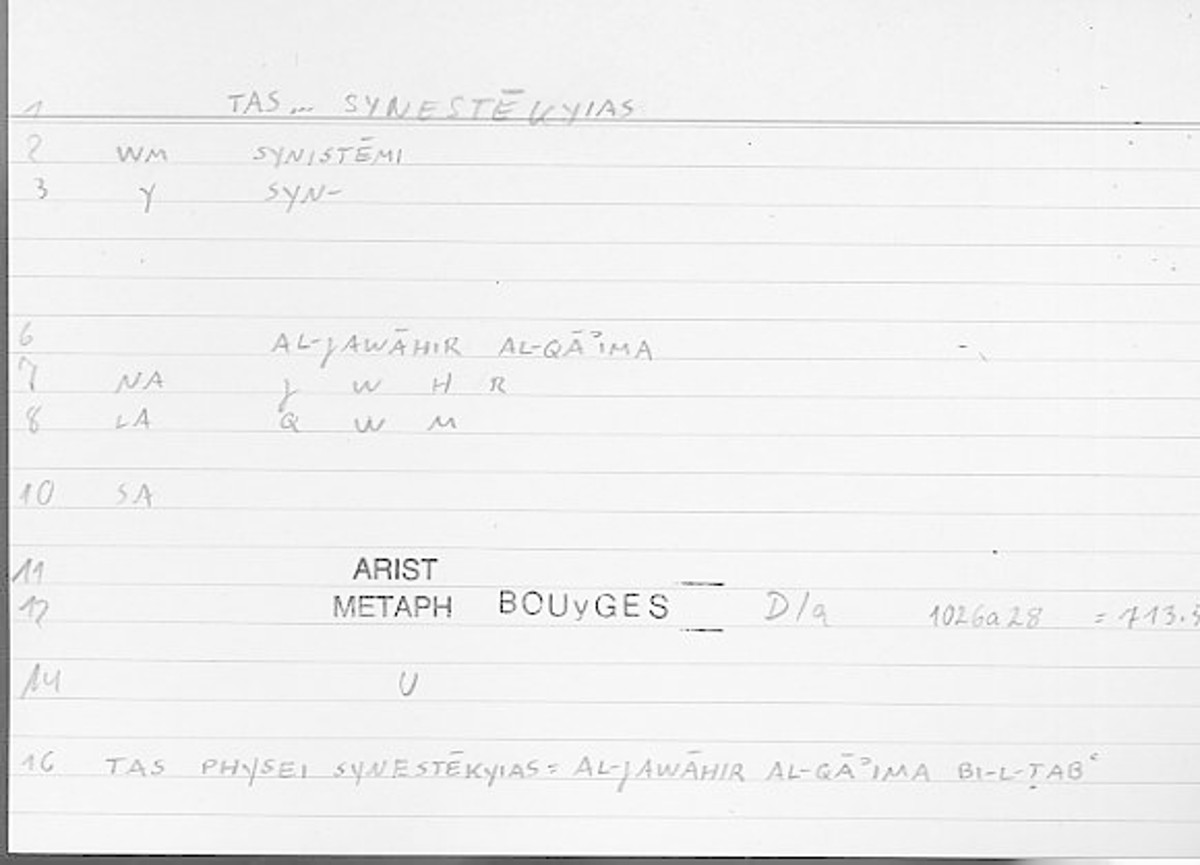 1 TAS... SYNESTĒKYIAS
2 WM SYNISTĒMI
3 Y SYN-
6 AL-JAWĀHIR AL-QĀʾIMA
7 NA J W H R
8 LA Q W M
10 SA
11 ARIST
12 METAPH BOUyGES D/a 1026a28 = 713.3
14 U
16 TAS PHYSEI SYNESTĒKYIAS = AL-JAWĀHIR AL-QĀʾIMA BI-L-ṬABʿ